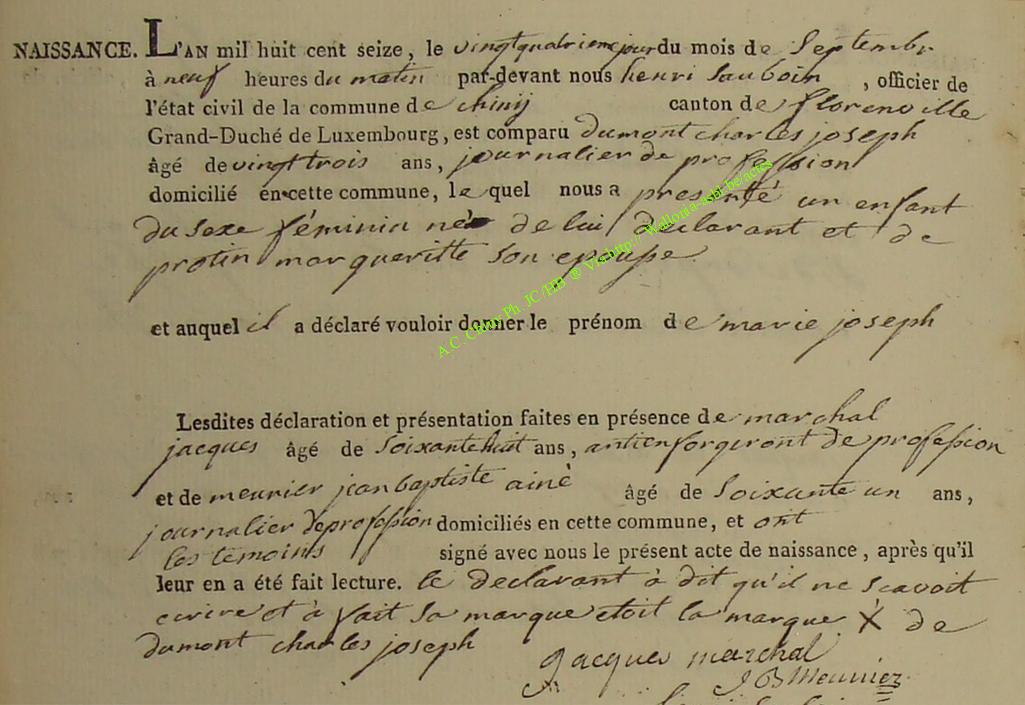 NAISSANCE. L'AN mil huit cent seize, le vingtquadriemejour du mois de Septembr
à neuf heures du matin par-devant nous henri Sauboin , officier de
l'état civil de la commune de chinij canton de florenville
Grand-Duché de Luxembourg, est comparu dumont charles joseph
âgé de vingt trois ans, journalier de profession
domicilié en cette commune, le quel nous a presenté un enfant
du sexe féminin né de lui declarant et de
protin margueritte son epouse
et auquel il a déclaré vouloir donner le prénom de marie joseph
A.C. Chiny Ph JC/HB @ Via http:// Wallonia-asbl.be/actes
Lesdites déclaration et présentation faites en présence de marchal
jacques âgé de Soixante huit ans, antien forgeront de profession
et de meunier jean baptiste ainè âgé de Soixante un ans,
journalier de profession domiciliés en cette commune, et ont
les temoins signé avec nous le présent acte de naissance, après qu'il
leur en a été fait lecture. le declarant à dit qu'il ne scavoit
ecrire et à fait sa marque etoit la marque X de
dumont charles joseph
Jacques marchal
J B Meunier